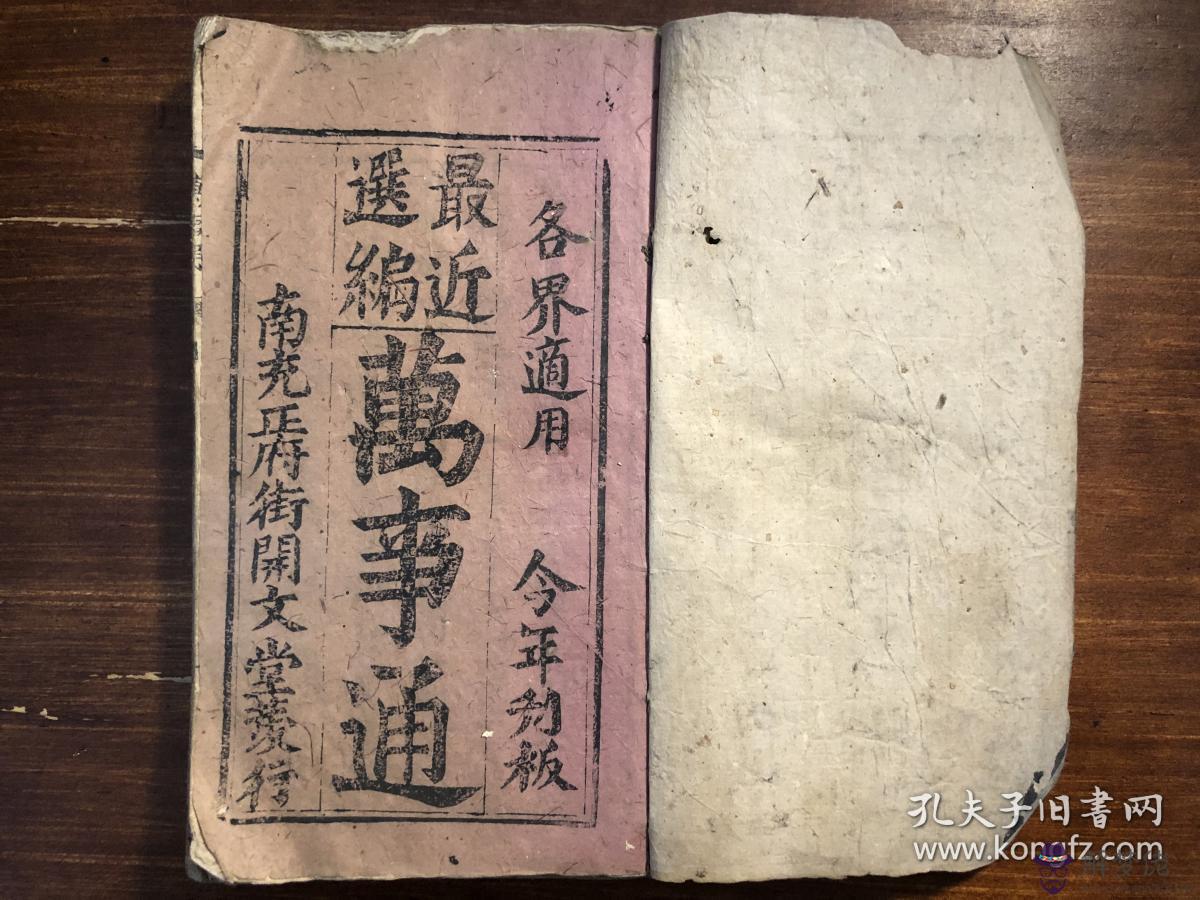 各界適用 今年刋板
最近
選編
萬事通
南充正府街開文堂發行
孔夫子旧书网
www.kongfz.com